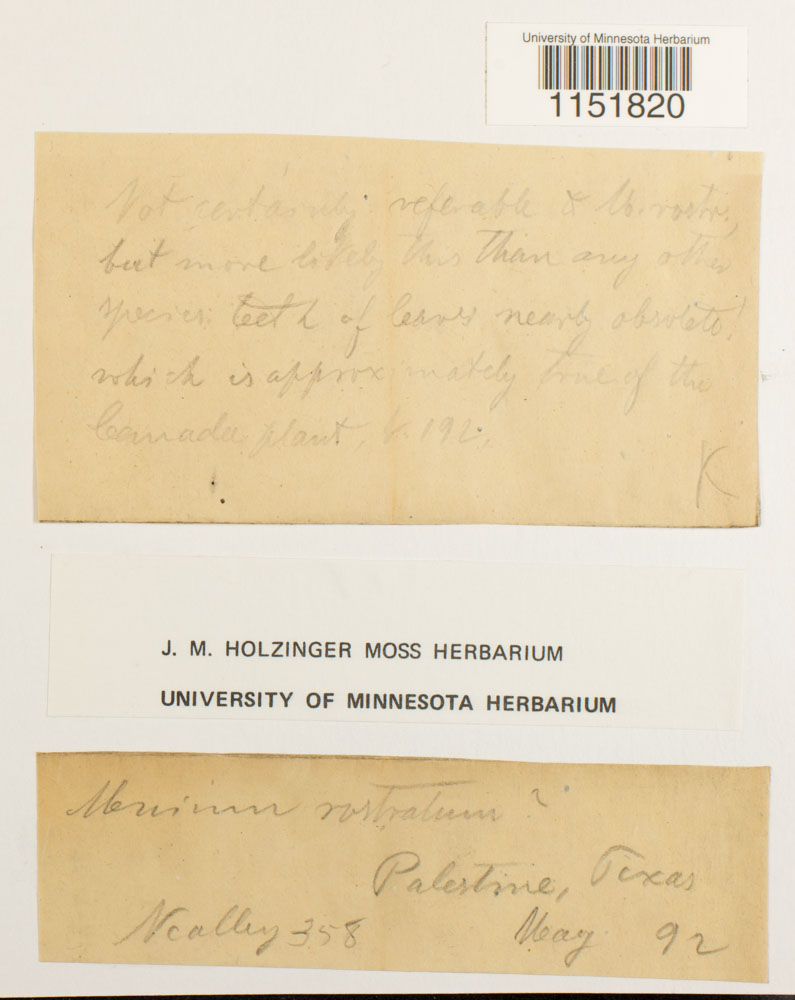 University of Minnesota Herbarium
1151820
Not certainly referable to M. rostr.,
but more likely this than any other
species: teeth of leaves nearly obsolete!
which is approximately true of the
Canada plant, 192.
K
J. M. HOLZINGER MOSS HERBARIUM
UNIVERSITY OF MINNESOTA HERBARIUM
Mnium rostratum?
Palestine, Texas
Nealley 358 May 92